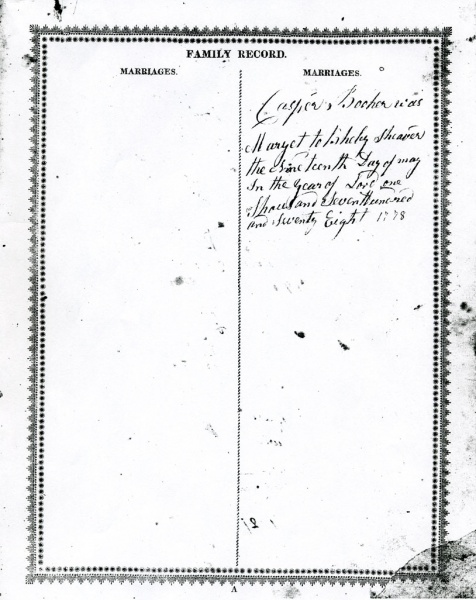 FAMILY RECORD.
MARRIAGES.
MARRIAGES.
Casper Booher was
Maryet to Sheaver
the Nineteenth Day of may
In the year of Lord one
Thousand Seven Hundred
and Seventy Eight 1778
A